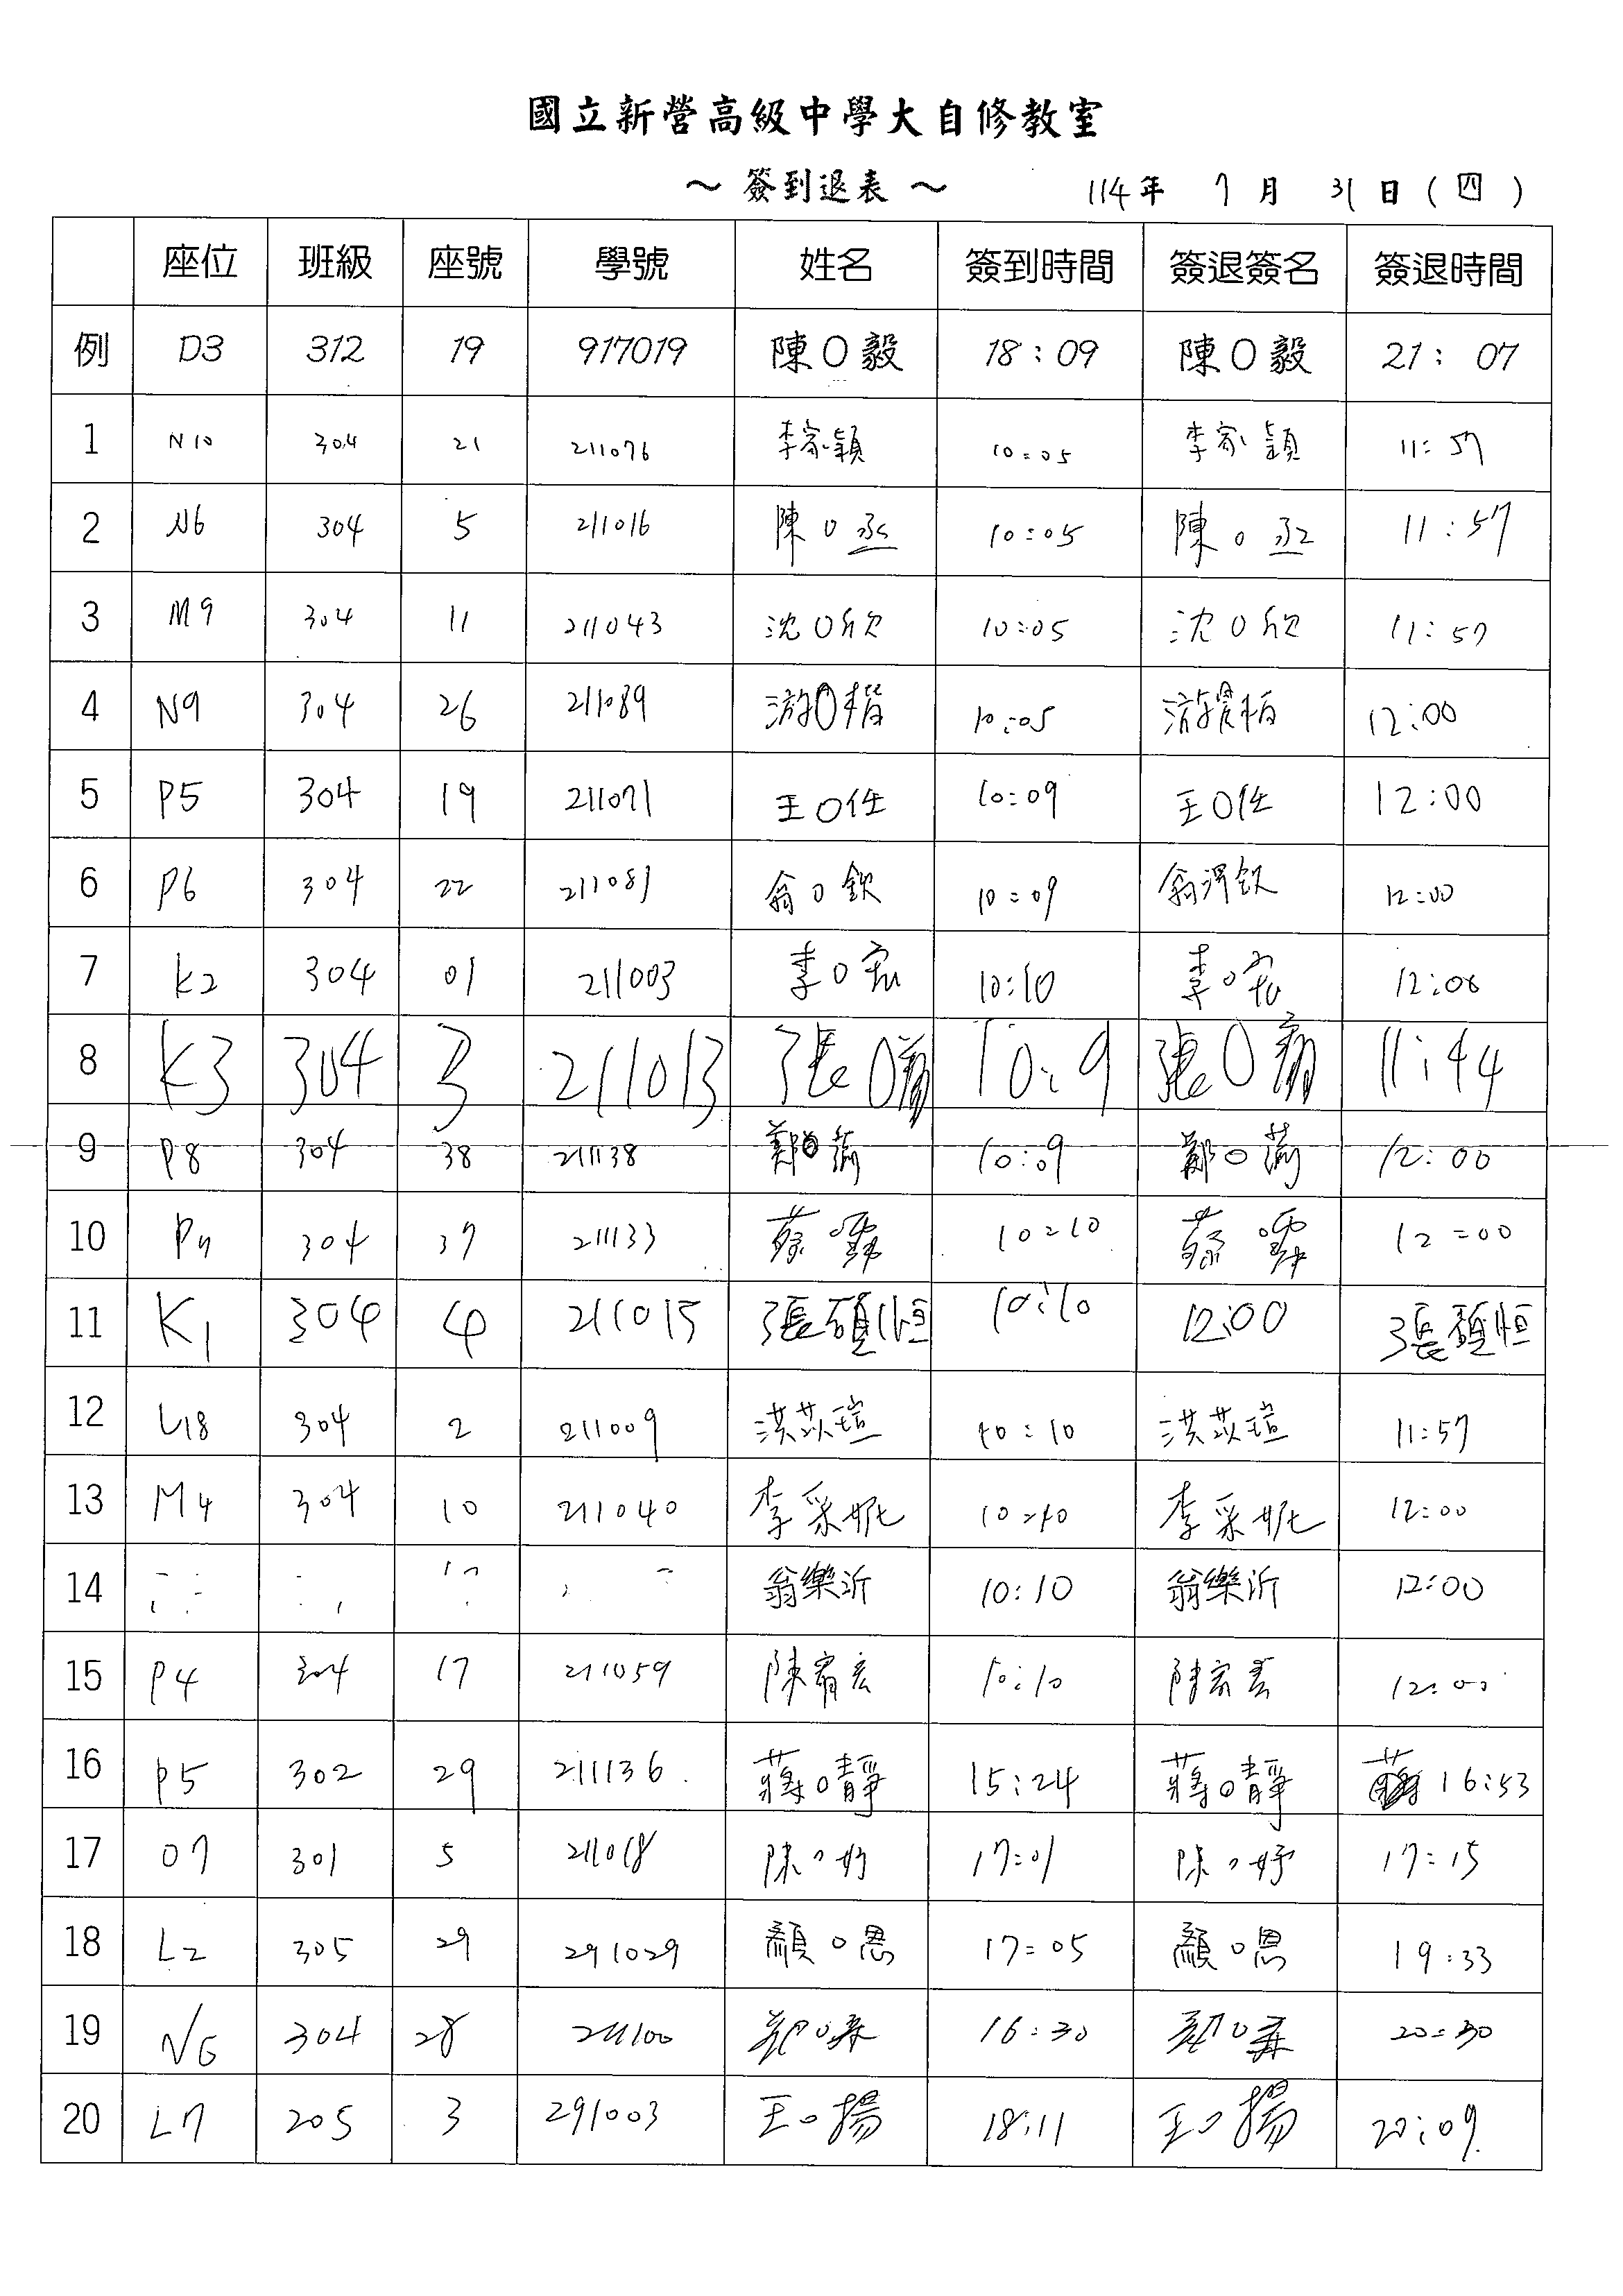 國立新營高級中學大自修教室
～ 簽到退表 ～ 114年 7月 31日(四)
座位 班級 座號 學號 姓名 簽到時間 簽退簽名 簽退時間
例 D3 312 19 917019 陳O毅 18:09 陳O毅 21:07
1 N10 304 21 211076 李家穎 10:05 李家穎 11:57
2 N6 304 5 211016 陳O丞 10:05 陳O丞 11:57
3 M9 304 11 211043 沈O欣 10:05 沈O欣 11:57
4 N9 304 26 211089 10:05 12:00
5 P5 304 19 211071 王O任 10:09 王O任 12:00
6 P6 304 22 211081 翁O欽 10:09 翁 欽 12:00
7 K2 304 01 211003 李O宏 10:10 李O宏 12:00
8 K3 304 3 211013 張O 10:9 張O 11:44
9 P8 304 38 211138 鄭O 10:09 鄭O 12:00
10 P7 304 37 211133 蔡O霖 10:10 蔡O霖 12:00
11 K1 304 4 211015 張碩恒 10:10 12:00 張碩恒
12 L18 304 2 211009 洪苡瑄 10:10 洪苡瑄 11:57
13 M4 304 10 211040 李采妮 10:10 李采妮 12:00
14 翁樂沂 10:10 翁樂沂 12:00
15 P4 304 17 211059 陳宥宏 10:10 陳宥宏 12:00
16 P5 302 29 211136 蔣O靜 15:24 蔣O靜 16:53
17 O7 301 5 211018 陳O妤 17:01 陳O妤 17:15
18 L2 305 29 291029 顏O恩 17:05 顏O恩 19:33
19 N6 304 28 211100 16:30 20:30
20 L7 205 3 291003 王O揚 18:11 王O揚 20:09